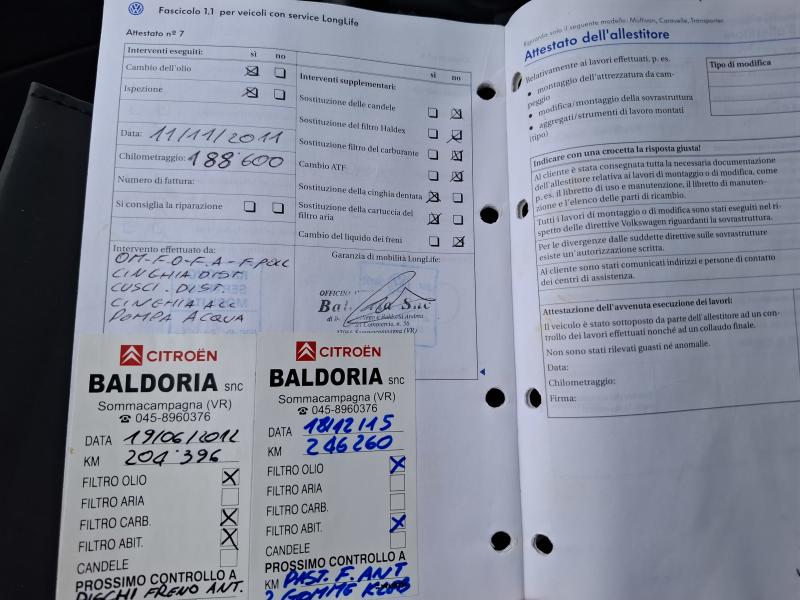 Fascicolo 1.1 per veicoli con service LongLife
Attestato nº 7
Interventi eseguiti: sì no
Cambio dell'olio
Ispezione
Data: 11/11/2011
Chilometraggio: 188'600
Numero di fattura:
Si consiglia la riparazione
Interventi supplementari: sì no
Sostituzione delle candele
Sostituzione del filtro Haldex
Sostituzione filtro del carburante
Cambio ATF
Sostituzione della cinghia dentata
Sostituzione della cartuccia del
filtro aria
Cambio del liquido dei freni
Intervento effettuato da:
OM-F-O-F.A-F.POLL
CINGHIA DIST.
CUSC. DIST.
CINGHIA A.C
POMPA ACQUA
Garanzia di mobilità LongLife:
OFFICINA
Snc
Baldoria Andrea
Commercio, n. 56
Sommacampagna (VR)
CITROËN
BALDORIA snc
Sommacampagna (VR)
☎ 045-8960376
DATA 19/06/2012
KM 204'396
FILTRO OLIO
FILTRO ARIA
FILTRO CARB.
FILTRO ABIT.
CANDELE
PROSSIMO CONTROLLO A
DISCHI FRENO ANT.
CITROËN
BALDORIA snc
Sommacampagna (VR)
☎ 045-8960376
DATA 18/12/15
KM 246260
FILTRO OLIO
FILTRO ARIA
FILTRO CARB.
FILTRO ABIT.
CANDELE
PROSSIMO CONTROLLO A
KM PAST. F. ANT
2 GOMME
Riguarda solo il seguente modello: Multivan, Caravelle, Transporter
Attestato dell'allestitore
Relativamente ai lavori effettuati, p. es.
• montaggio dell'attrezzatura da cam-
peggio
• modifica/montaggio della sovrastruttura
• aggregati/strumenti di lavoro montati
(tipo)
Tipo di modifica
Indicare con una crocetta la risposta giusta!
Al cliente è stata consegnata tutta la necessaria documentazione
dell'allestitore relativa ai lavori di montaggio o di modifica, come
p. es. il libretto di uso e manutenzione, il libretto di manuten-
zione e l'elenco delle parti di ricambio.
Tutti i lavori di montaggio o di modifica sono stati eseguiti nel ri-
spetto delle direttive Volkswagen riguardanti la sovrastruttura.
Per le divergenze dalle suddette direttive sulla sovrastruttura
esiste un'autorizzazione scritta.
Al cliente sono stati comunicati indirizzi e persone di contatto
dei centri di assistenza.
Attestazione dell'avvenuta esecuzione dei lavori:
Il veicolo è stato sottoposto da parte dell'allestitore ad un con-
trollo dei lavori effettuati nonché ad un collaudo finale.
Non sono stati rilevati guasti né anomalie.
Data:
Chilometraggio:
Firma: